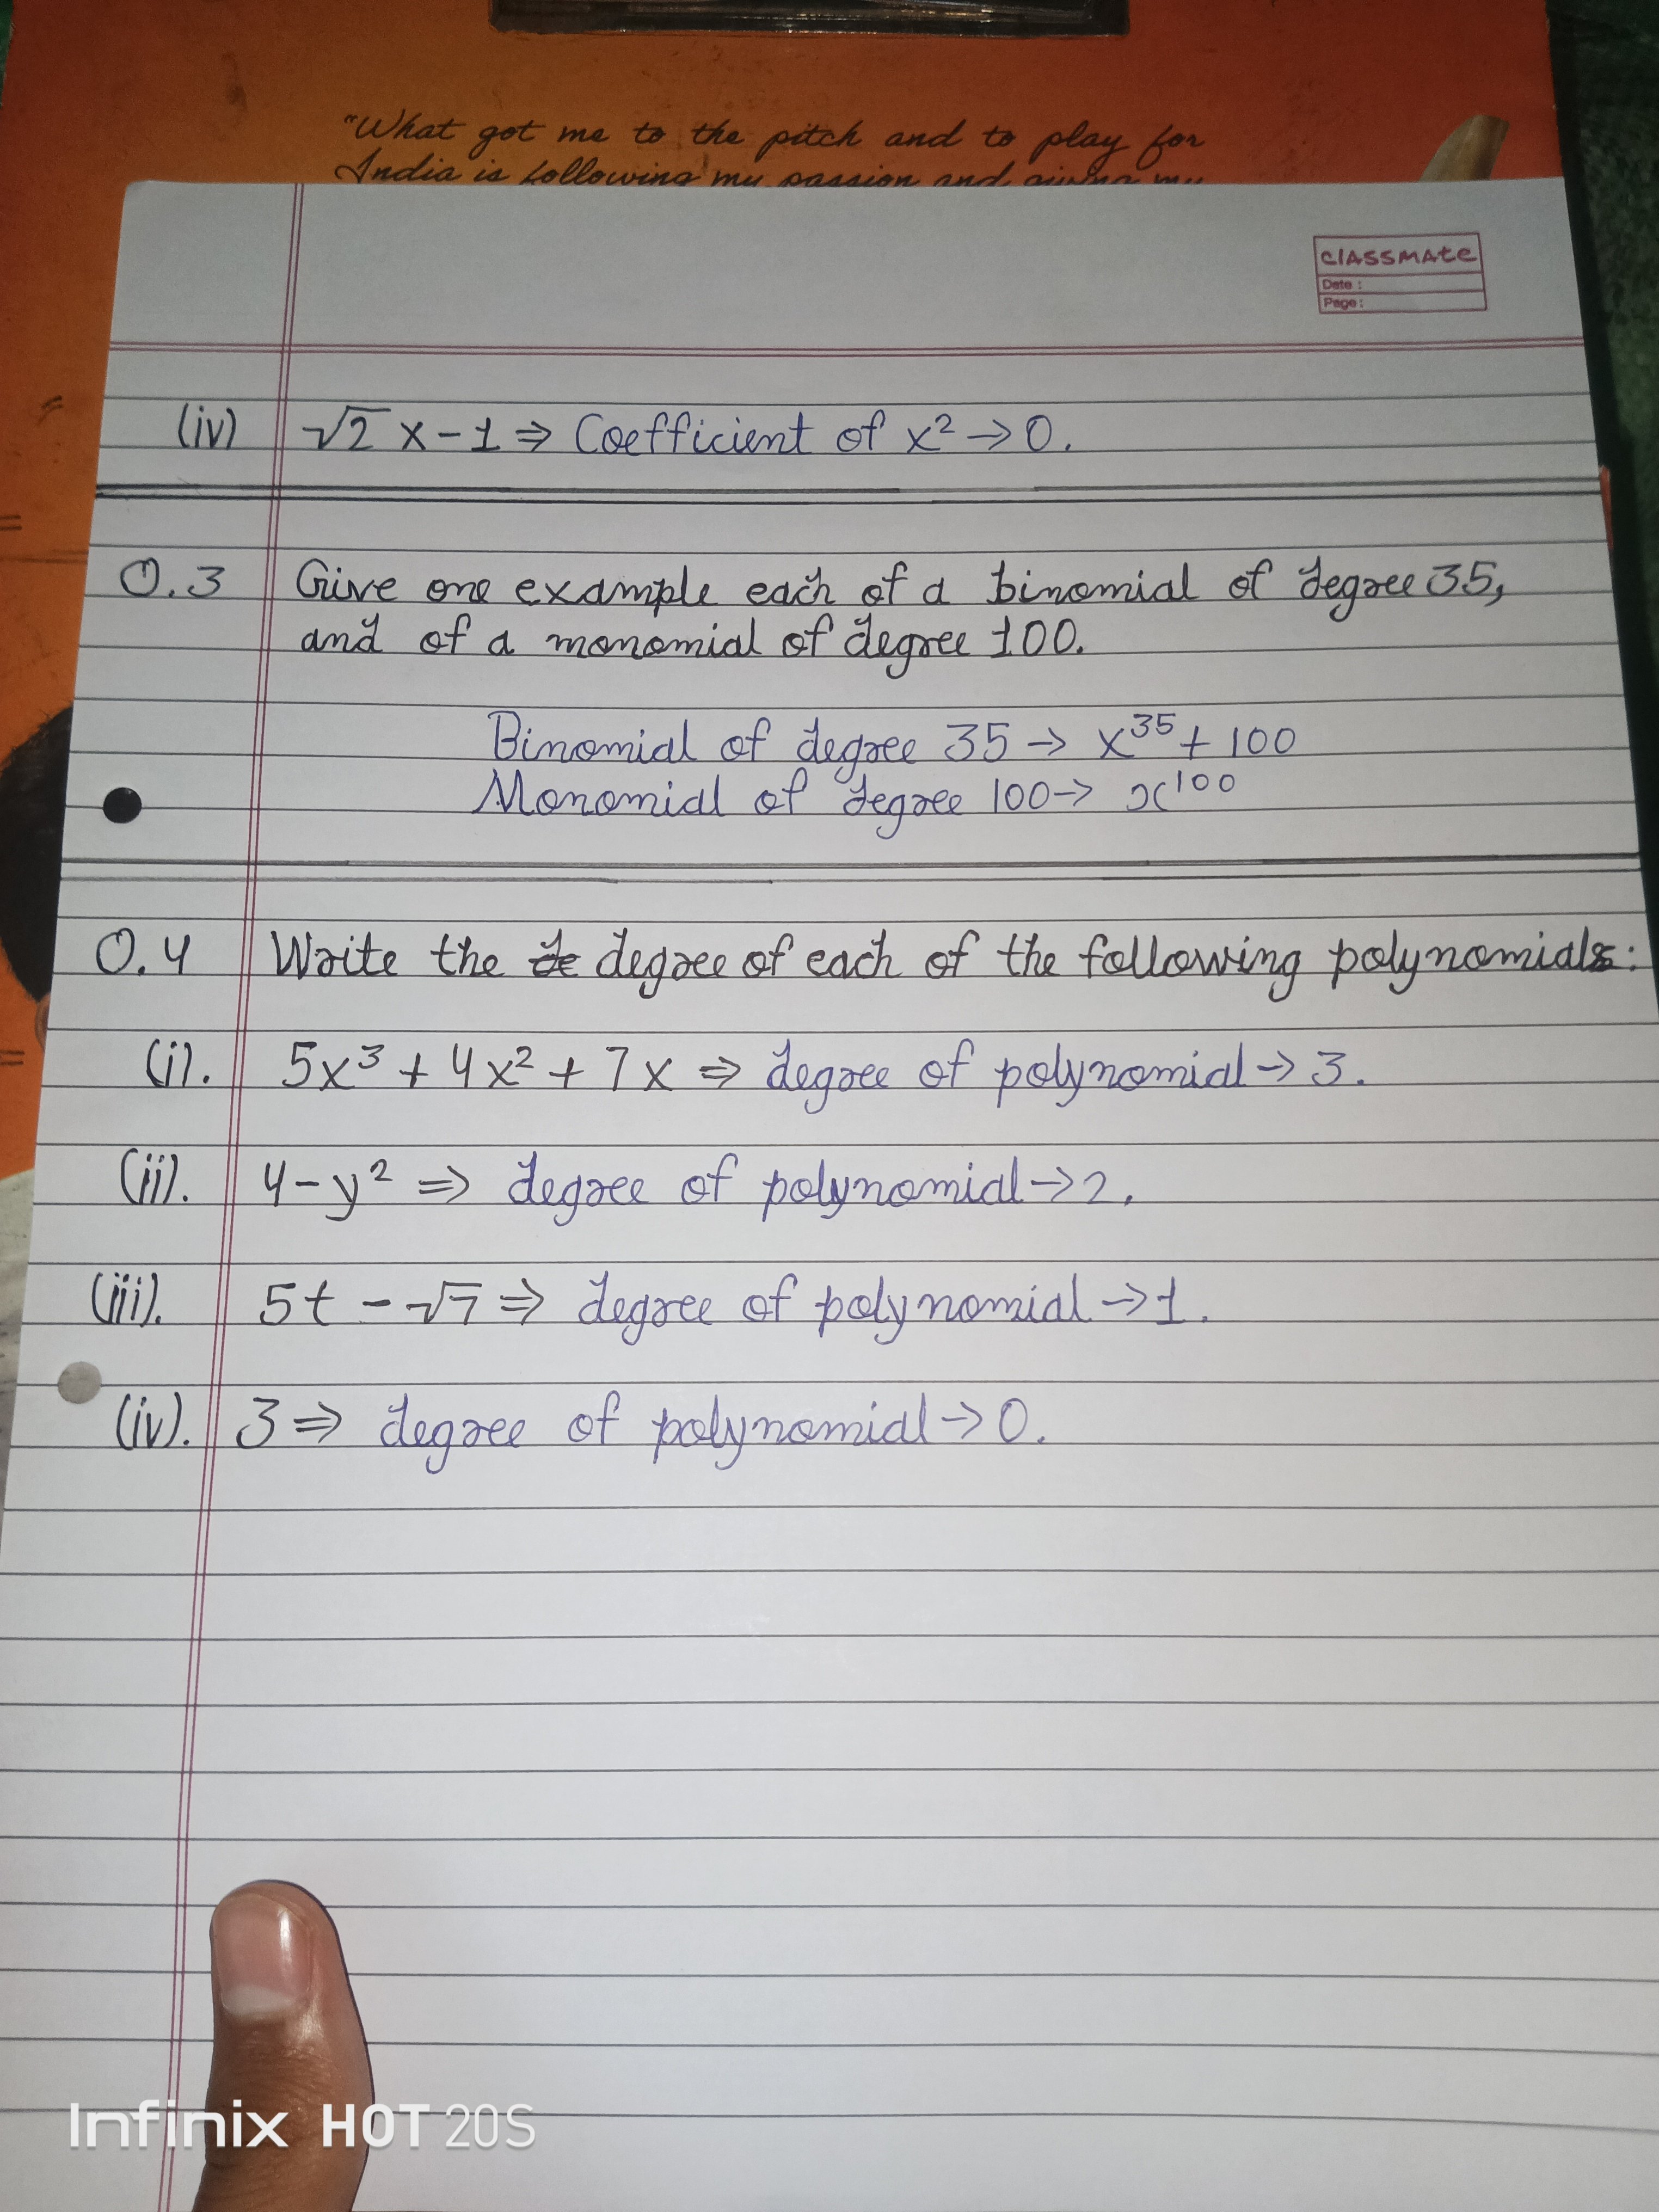 "What got me to the pitch and to play for
India is following my passion and giving my
classmate
Date :
Page :
(iv) √2 x - 1 ⇒ Coefficient of x² → 0.
Q.3 Give one example each of a binomial of degree 35,
and of a monomial of degree 100.
Binomial of degree 35 → x³⁵ + 100
Monomial of degree 100 → x¹⁰⁰
Q.4 Write the de degree of each of the following polynomials:
(i). 5x³ + 4x² + 7x ⇒ degree of polynomial → 3.
(ii). 4 - y² ⇒ degree of polynomial → 2.
(iii). 5t - √7 ⇒ degree of polynomial → 1.
(iv). 3 ⇒ degree of polynomial → 0.
Infinix HOT 20S